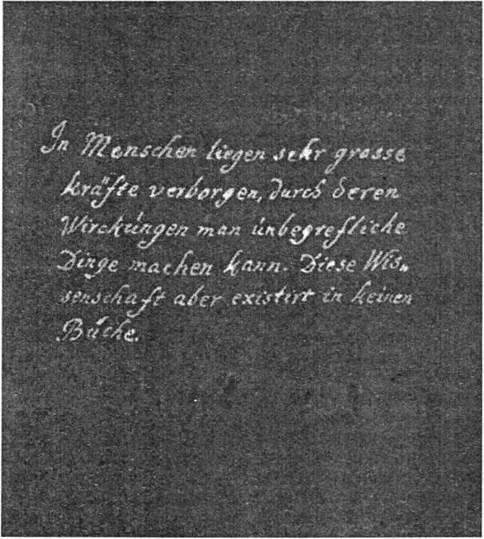 In Menschen liegen sehr grosse
kräfte verborgen, durch deren
Wirckúngen man únbegrefliche
Dinge machen kann. Diese Wis„
senschaft aber existirt in keinen
Búche.